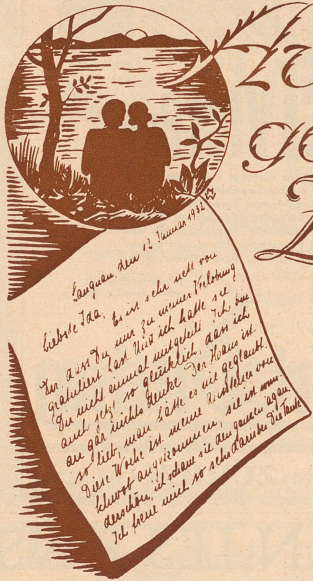 Langnau den 12. Januar 1932
Liebste Ida, Es ist sehr nett von
Dir, dass Du mir zu meiner Verlobung
gratuliert hast. Und ich hatte sie
Dir nicht einmal mitgeteilt. Ich bin
auch jetzt so glücklich, dass ich
an gar nichts denke. Der Hans ist
so lieb, man hätte es nie geglaubt.
Diese Woche ist meine Aussteuer von
Schwob angekommen, sie ist wun-
derschön, ich schaue sie den ganzen Tag an.
Ich freue mich so sehr darüber. Die Tante